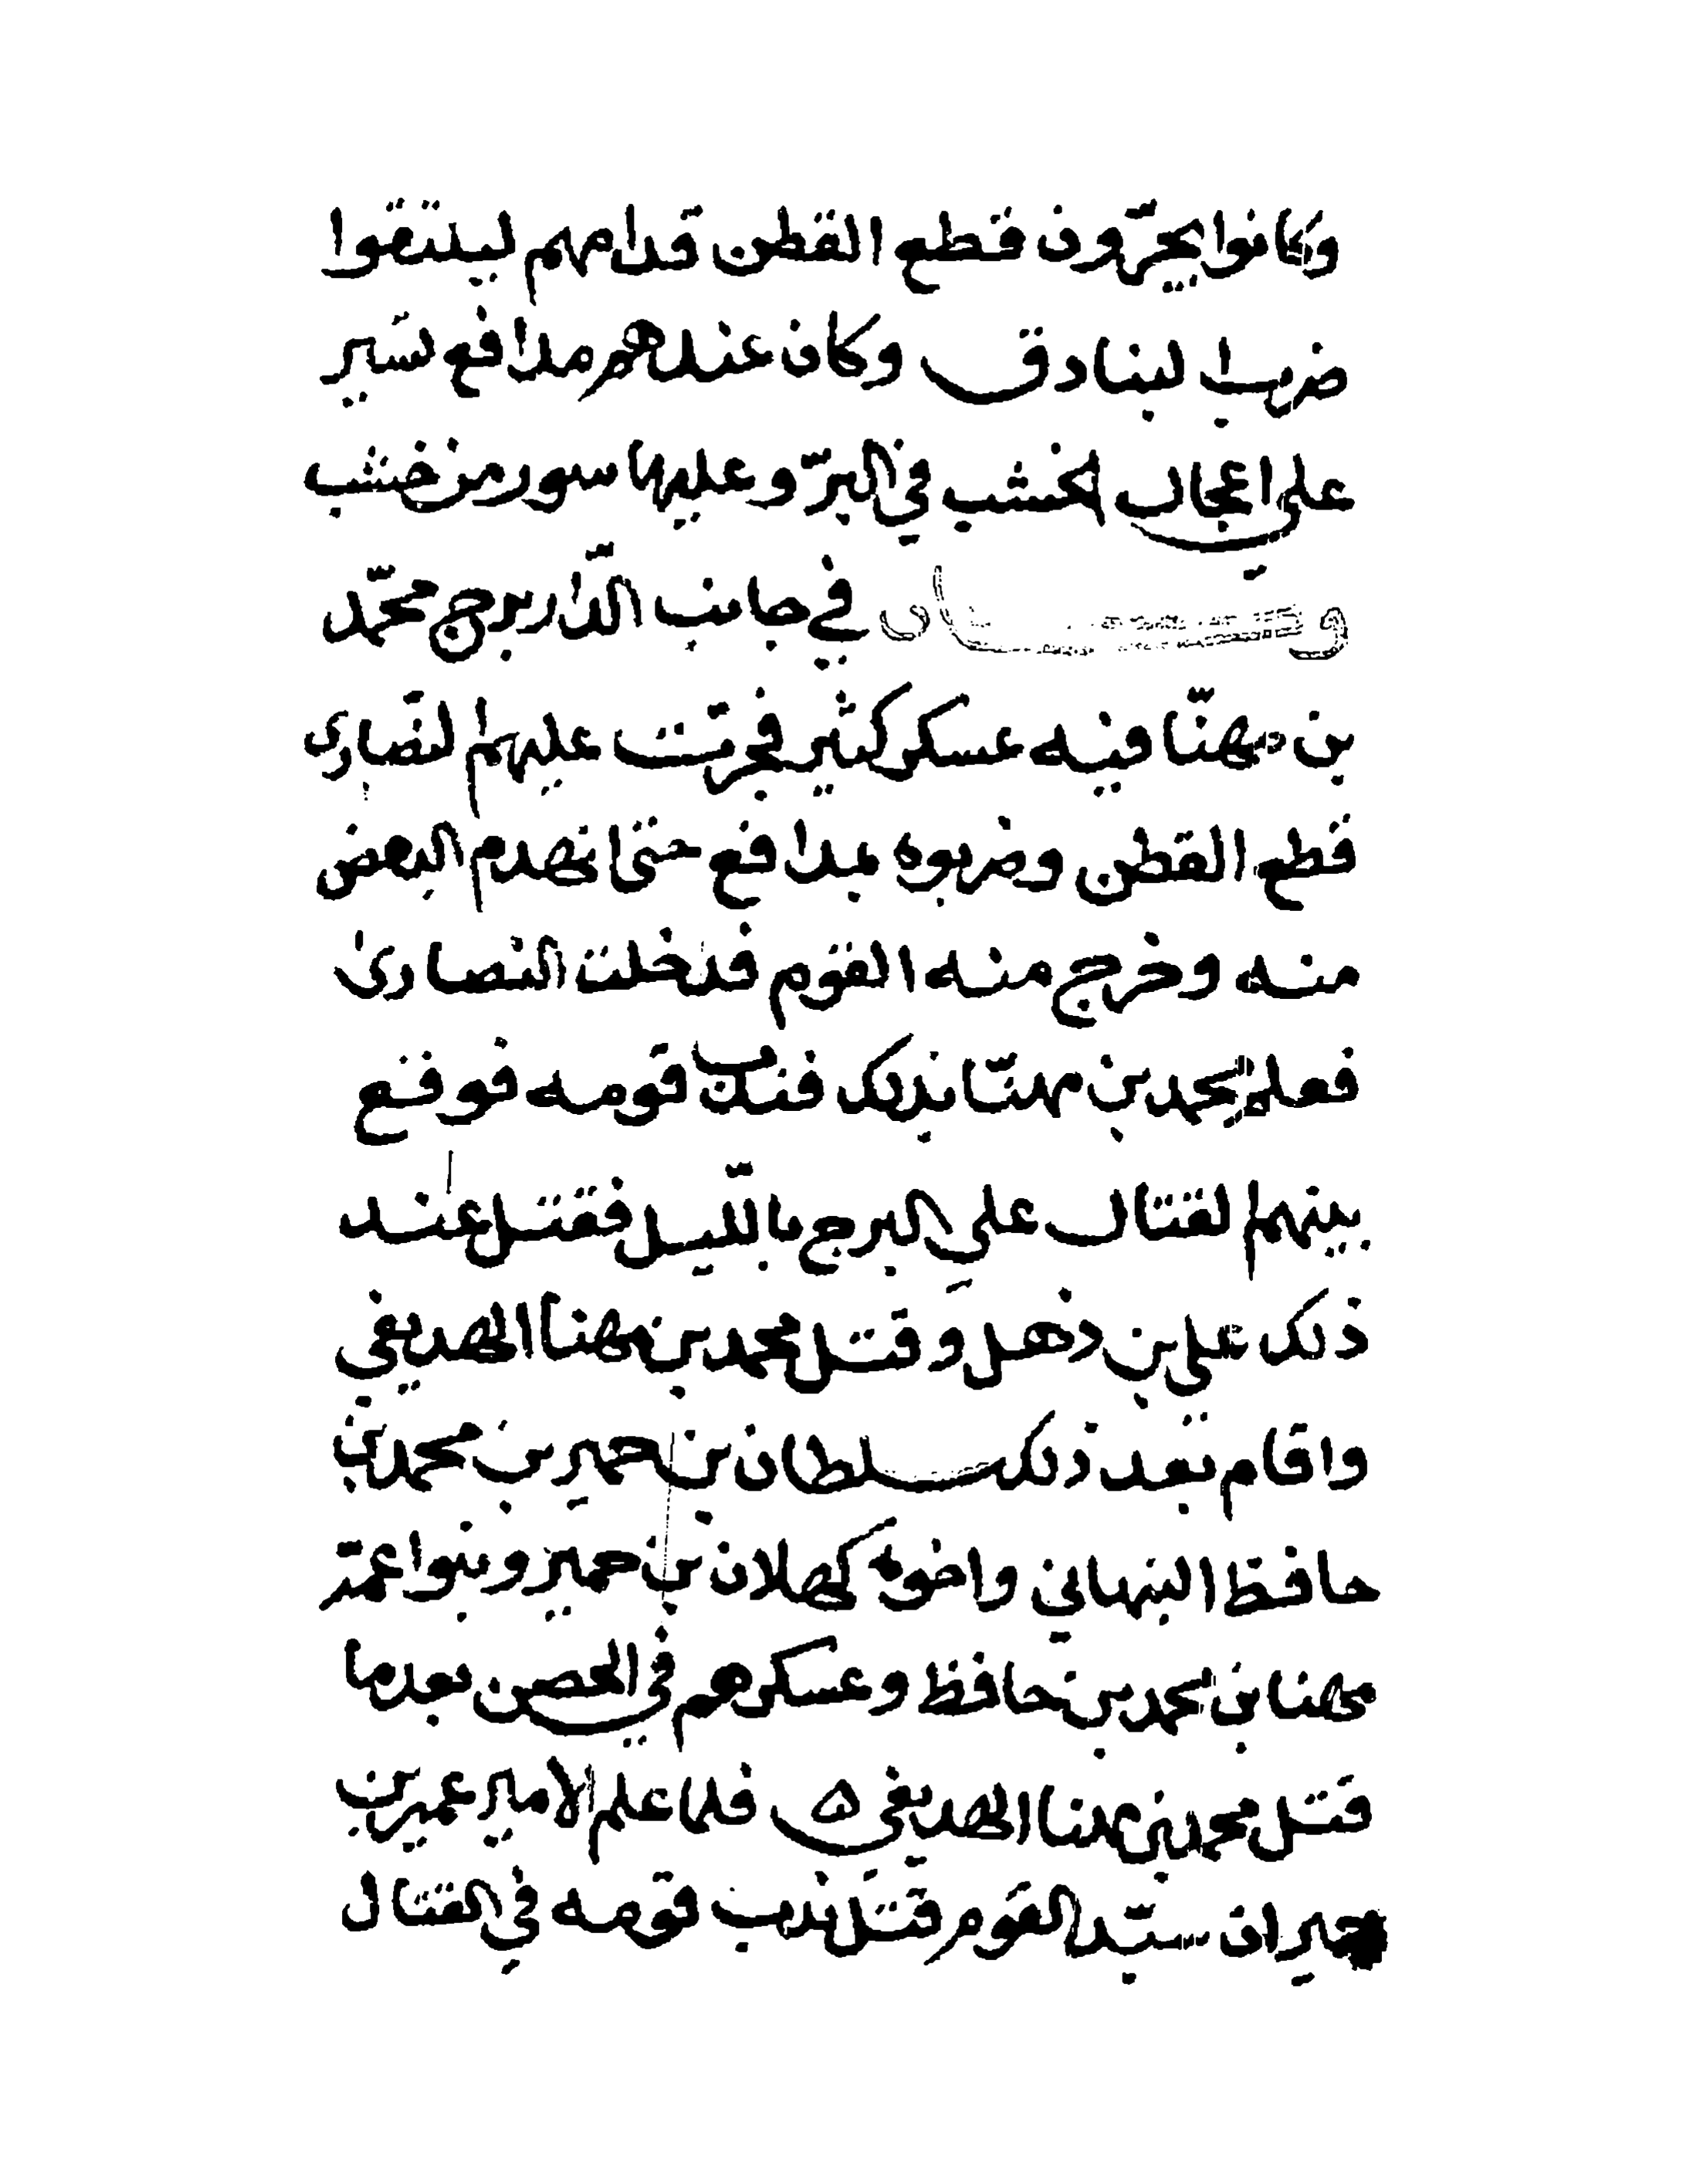 وكانوا يجرّون قطع القطن قدامهم ليتقوا
ضرب البنادق وكان عندهم مدافع تسير
على اعجال الخشب في البرّ وعليها سور من خشب
وكان في جانب الدّار برج محمّد
بن مهنّا فيه عسكر كثير فجرّت عليهم النصارى
قطع القطن وضربوه بمدافع حتى انهدم البعض
منه وخرج منه القوم فدخلت النصارى
فعلم محمد بن مهنّا بذلك فندب قومه فوقع
بينهم القتال على البرج بالّليل فقتل عند
ذلك علي بن ذهل وقتل محمد بن مهنا الهديفي
واقام بعد ذلك سلطان بن حمير بن محمد بن
حافظ النبهاني واخوه كهلان بن حمير وبنوا عمّه
مهنا بن محمد بن حافظ وعسكرهم في الحصن بعدما
قتل محمد بن مهنا الهديفي ه فلما علم الامير عمير بن
حمير ان سيّد القوم قتل ندب قومه في القتال